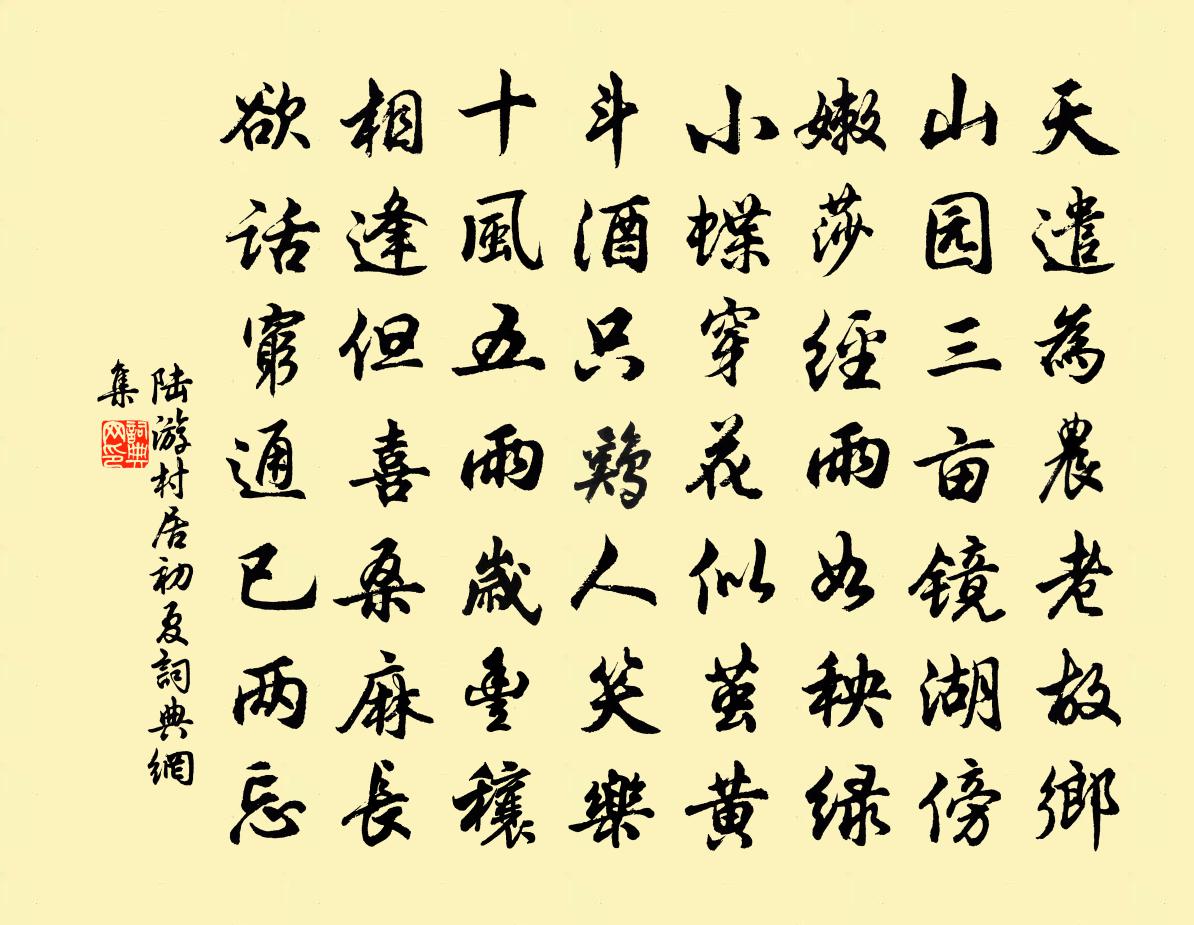 天遣為農老故鄉
山园三亩镜湖傍
嫩莎經雨如秧绿
小蝶穿花似茧黄
斗酒只鷄人笑樂
十風五雨歲豊穰
相逢但喜桑麻長
欲話窮通已两忘
陆游村居初夏詞典網
集
詞典
网印